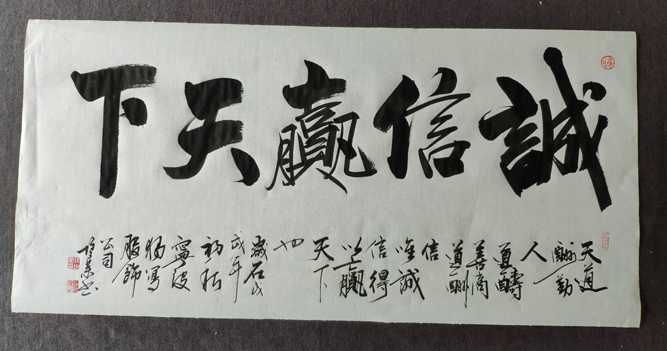 誠信贏天下
天道
酬勤
人
道酬
善商
道酬
信
唯誠
信得
以贏
天下
也
歲在戊
戌年
初秋
寧波
獨寫
服飾
公司